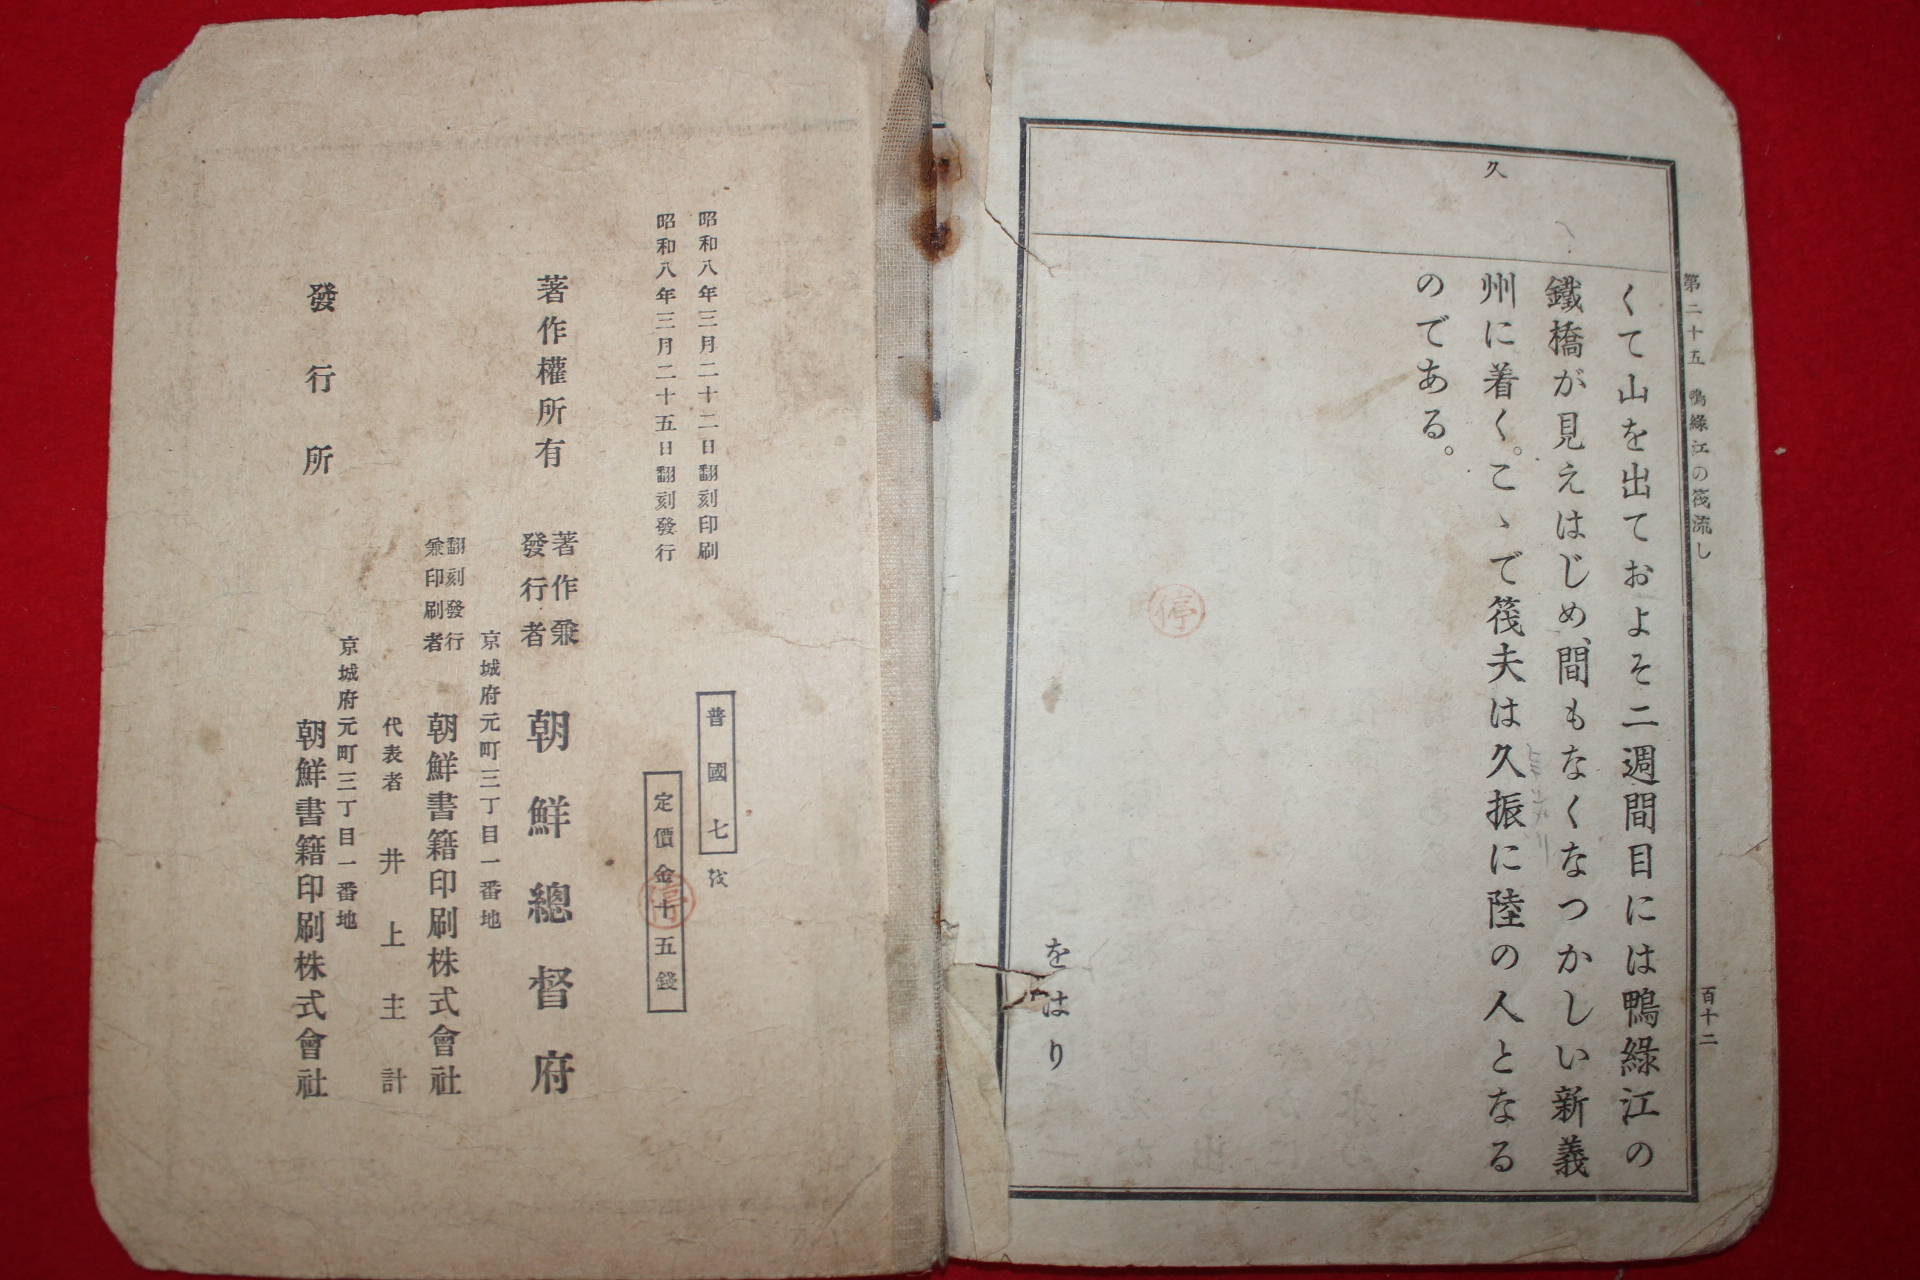 第二十五 鴨綠江の筏流し
百十二
久
くて山を出ておよそ二週間目には鴨綠江の
鐵橋が見えはじめ、間もなくなつかしい新義
州に着く。こゝで筏夫は久振に陸の人となる
のである。
をはり
停
普國七
昭和八年三月二十二日翻刻印刷
昭和八年三月二十五日翻刻發行
定價金十五錢
停
著作權所有
著作兼
發行者
朝鮮總督府
京城府元町三丁目一番地
翻刻發行
兼印刷者
朝鮮書籍印刷株式會社
代表者 井上主計
京城府元町三丁目一番地
發行所
朝鮮書籍印刷株式會社